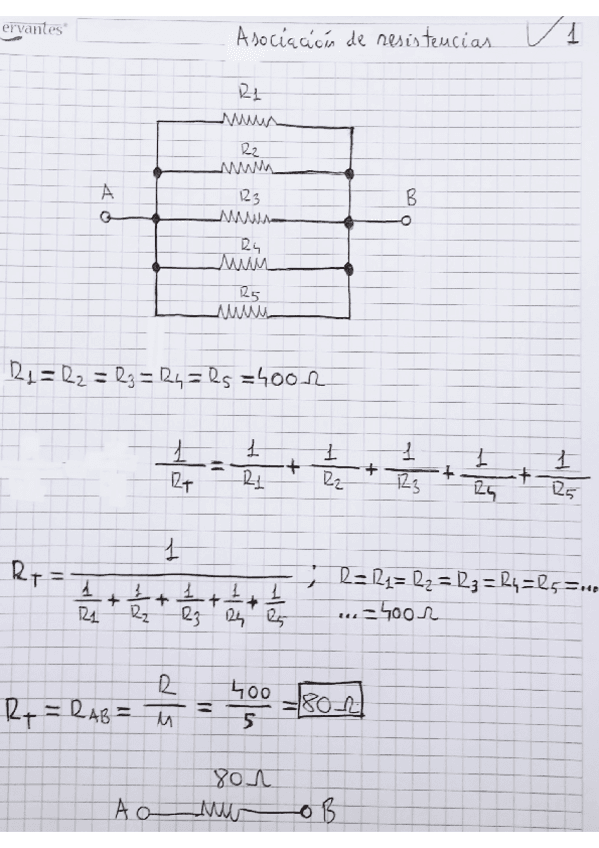 ervantes®
Asociación de resistencias 1
R1
R2
R3
A B
R4
R5
R1 = R2 = R3 = R4 = R5 = 400 Ω
1/RT = 1/R1 + 1/R2 + 1/R3 + 1/R4 + 1/R5
RT = 1/(1/R1 + 1/R2 + 1/R3 + 1/R4 + 1/R5) ; R = R1 = R2 = R3 = R4 = R5 = ...
... = 400 Ω
RT = RAB = R/n = 400/5 = 80 Ω
80 Ω
A B